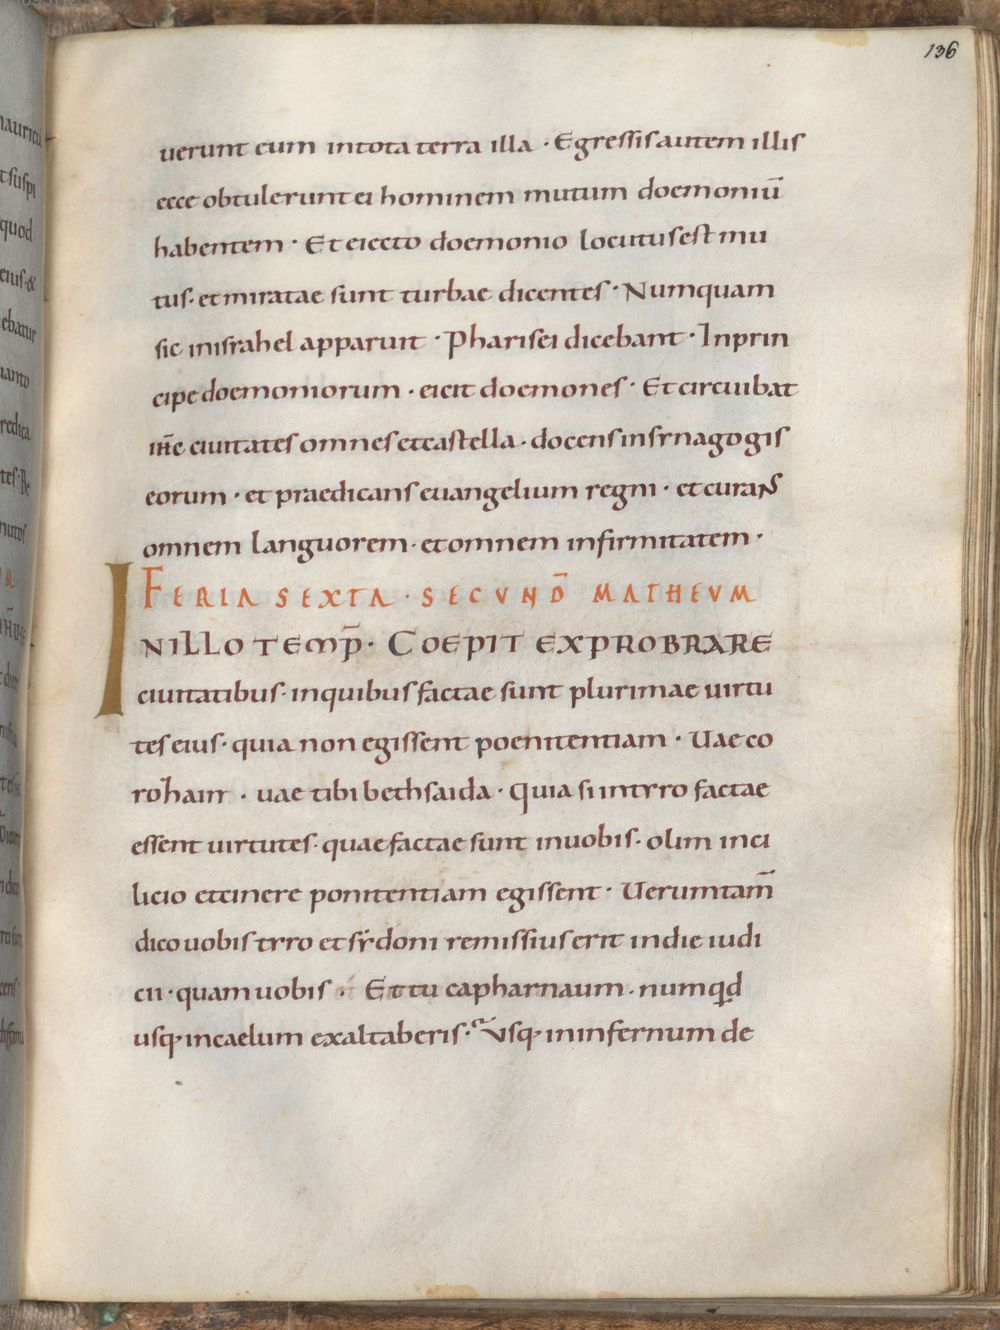 136
uerunt eum intota terra illa · Egressis autem illis
ecce obtulerunt ei hominem mutum doemoniū
habentem · Et eiecto doemonio locutus est mu
tus · et miratae sunt turbae dicentes · Numquam
sic inisrahel apparuit · Pharisei dicebant · Inprin
cipe doemoniorum · eicit doemones · Et circuibat
ih̄c ciuitates omnes et castella · docens insynagogis
eorum · et praedicans euangelium regni · et curans
omnem languorem · et omnem infirmitatem ·
FERIA SEXTA · SECUND̄ MATHEUM
IN ILLO TEMP̄ · COEPIT EXPROBRARE
ciuitatibus · inquibus factae sunt plurimae uirtu
tes eius · quia non egissent poenitentiam · Uae co
rohain · uae tibi bethsaida · Quia si intyro factae
essent uirtutes · quae factae sunt inuobis · olim inci
licio et cinere ponitentiam egissent · Uerumtam̄
dico uobis tyro et sydoni remissius erit indie iudi
cii · quam uobis · Et tu capharnaum · numqd
usq· incaelum exaltaberis · Usq· ininfernum de